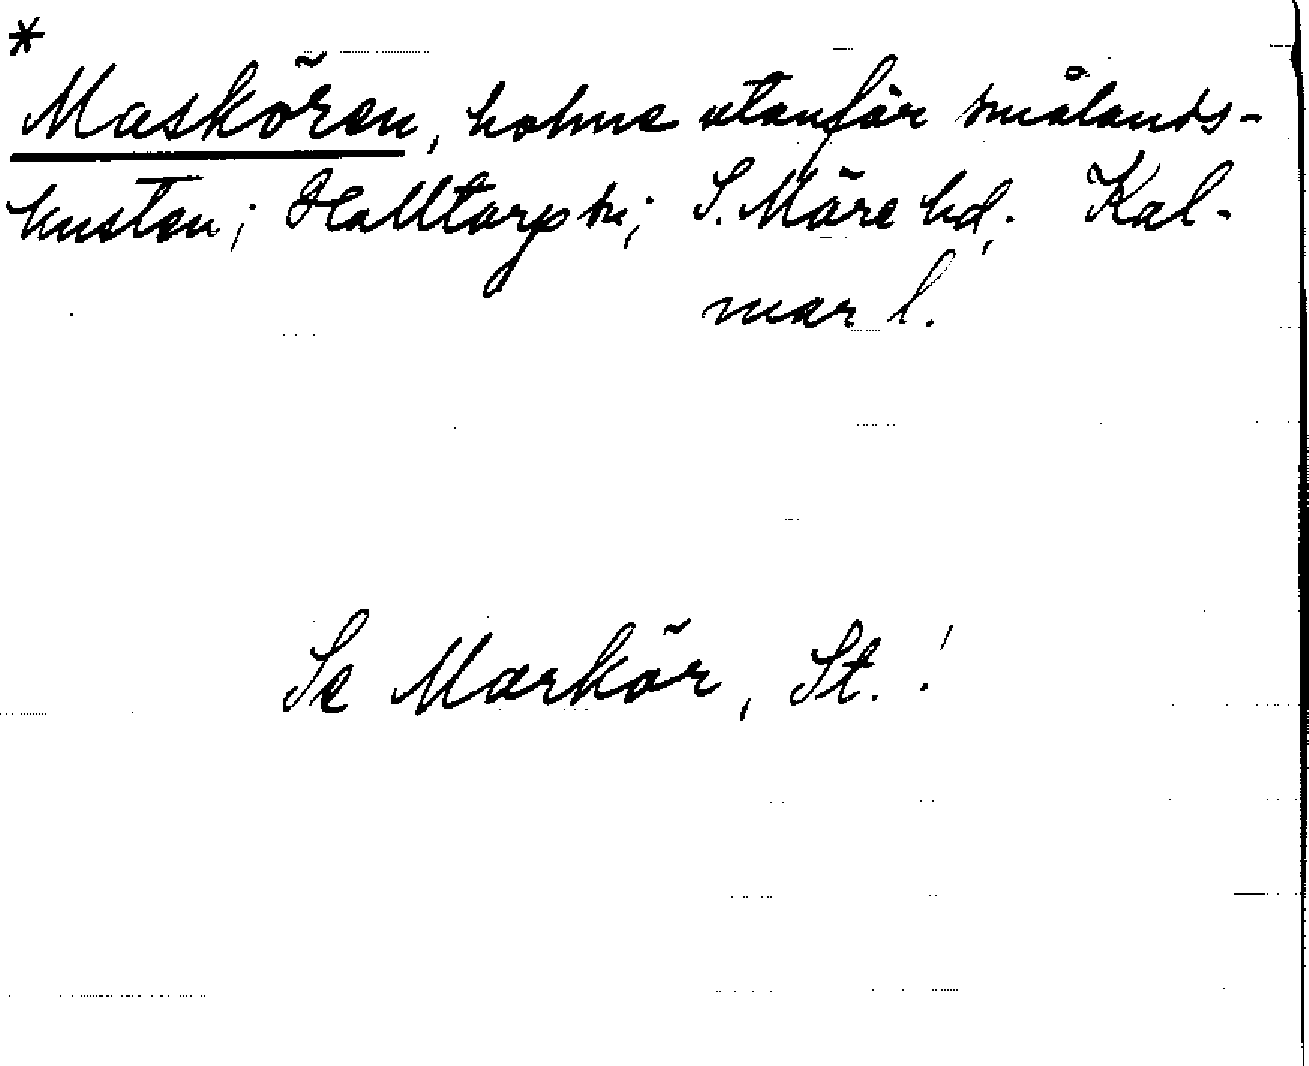 *
Maskören, holme utanför smålands-
kusten; Halltorp sn; S. Möre hd. Kal-
mar l.
Se Markör, St.!